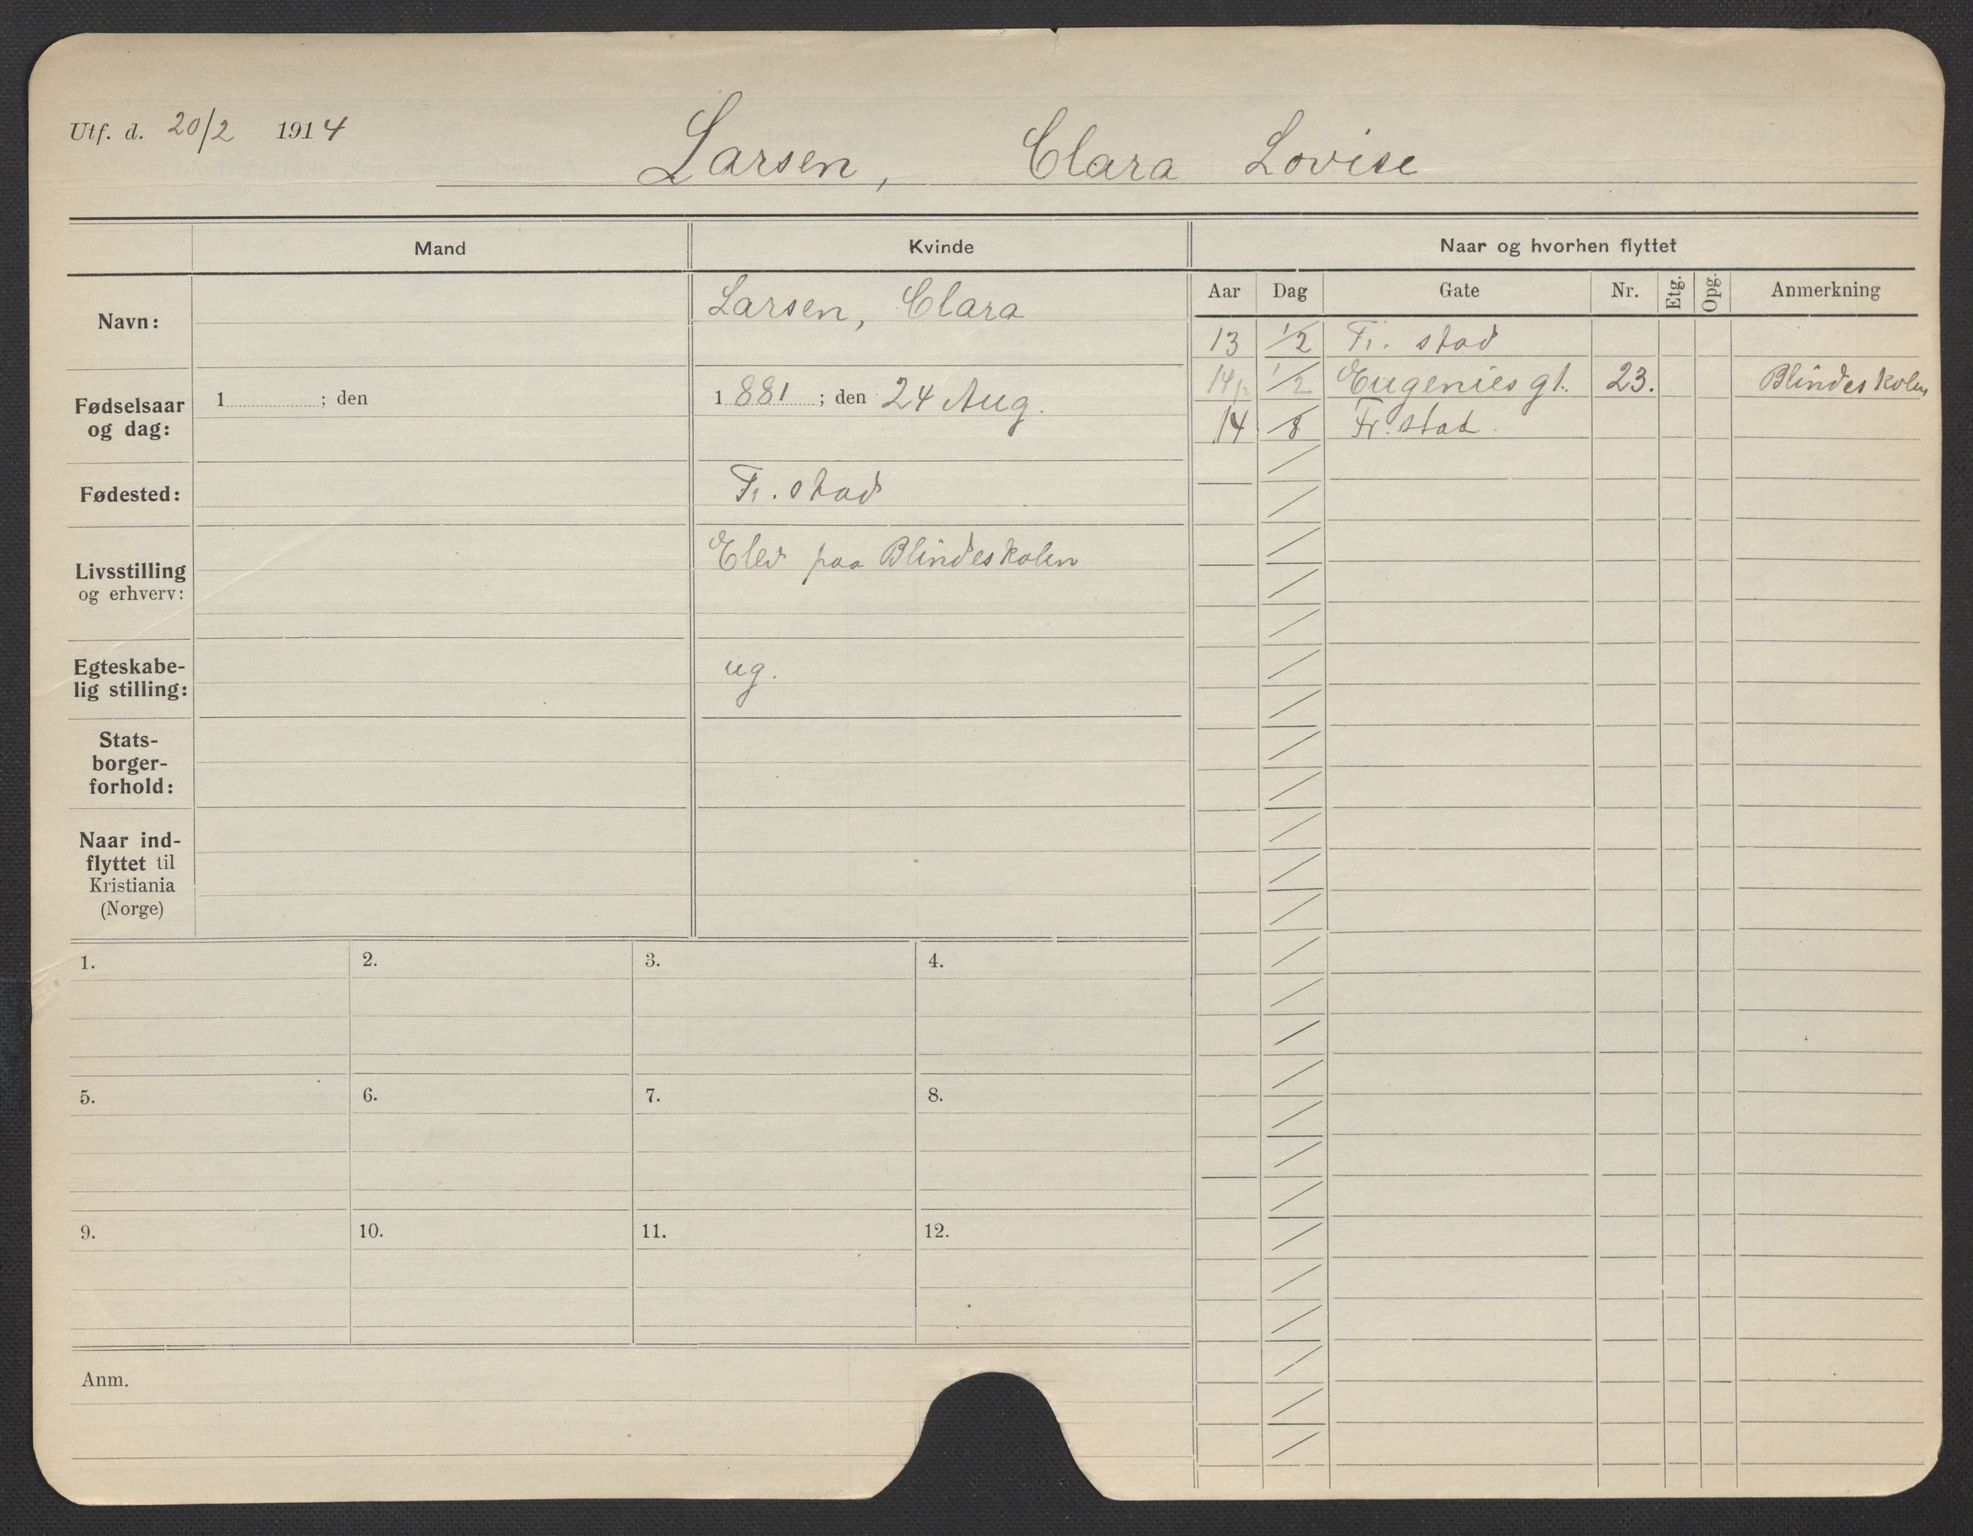 Utf. d. 20/2 1914
Larsen, Clara Lovise
Mand
Kvinde
Naar og hvorhen flyttet
Aar Dag Gate Nr. Etg. Opg. Anmerkning
Navn:
Larsen, Clara
13 1/2 Fr. stad
14 1/2 Eugenies gt. 23. Blindeskolen
14 /8 Fr. stad
Fødselsaar
og dag:
1 ; den
1 881 ; den 24 Aug.
Fødested:
Fr. stad
Livsstilling
og erhverv:
Elev paa Blindeskolen
Egteskabe-
lig stilling:
ug.
Stats-
borger-
forhold:
Naar ind-
flyttet til
Kristiania
(Norge)
1. 2. 3. 4.
5. 6. 7. 8.
9. 10. 11. 12.
Anm.